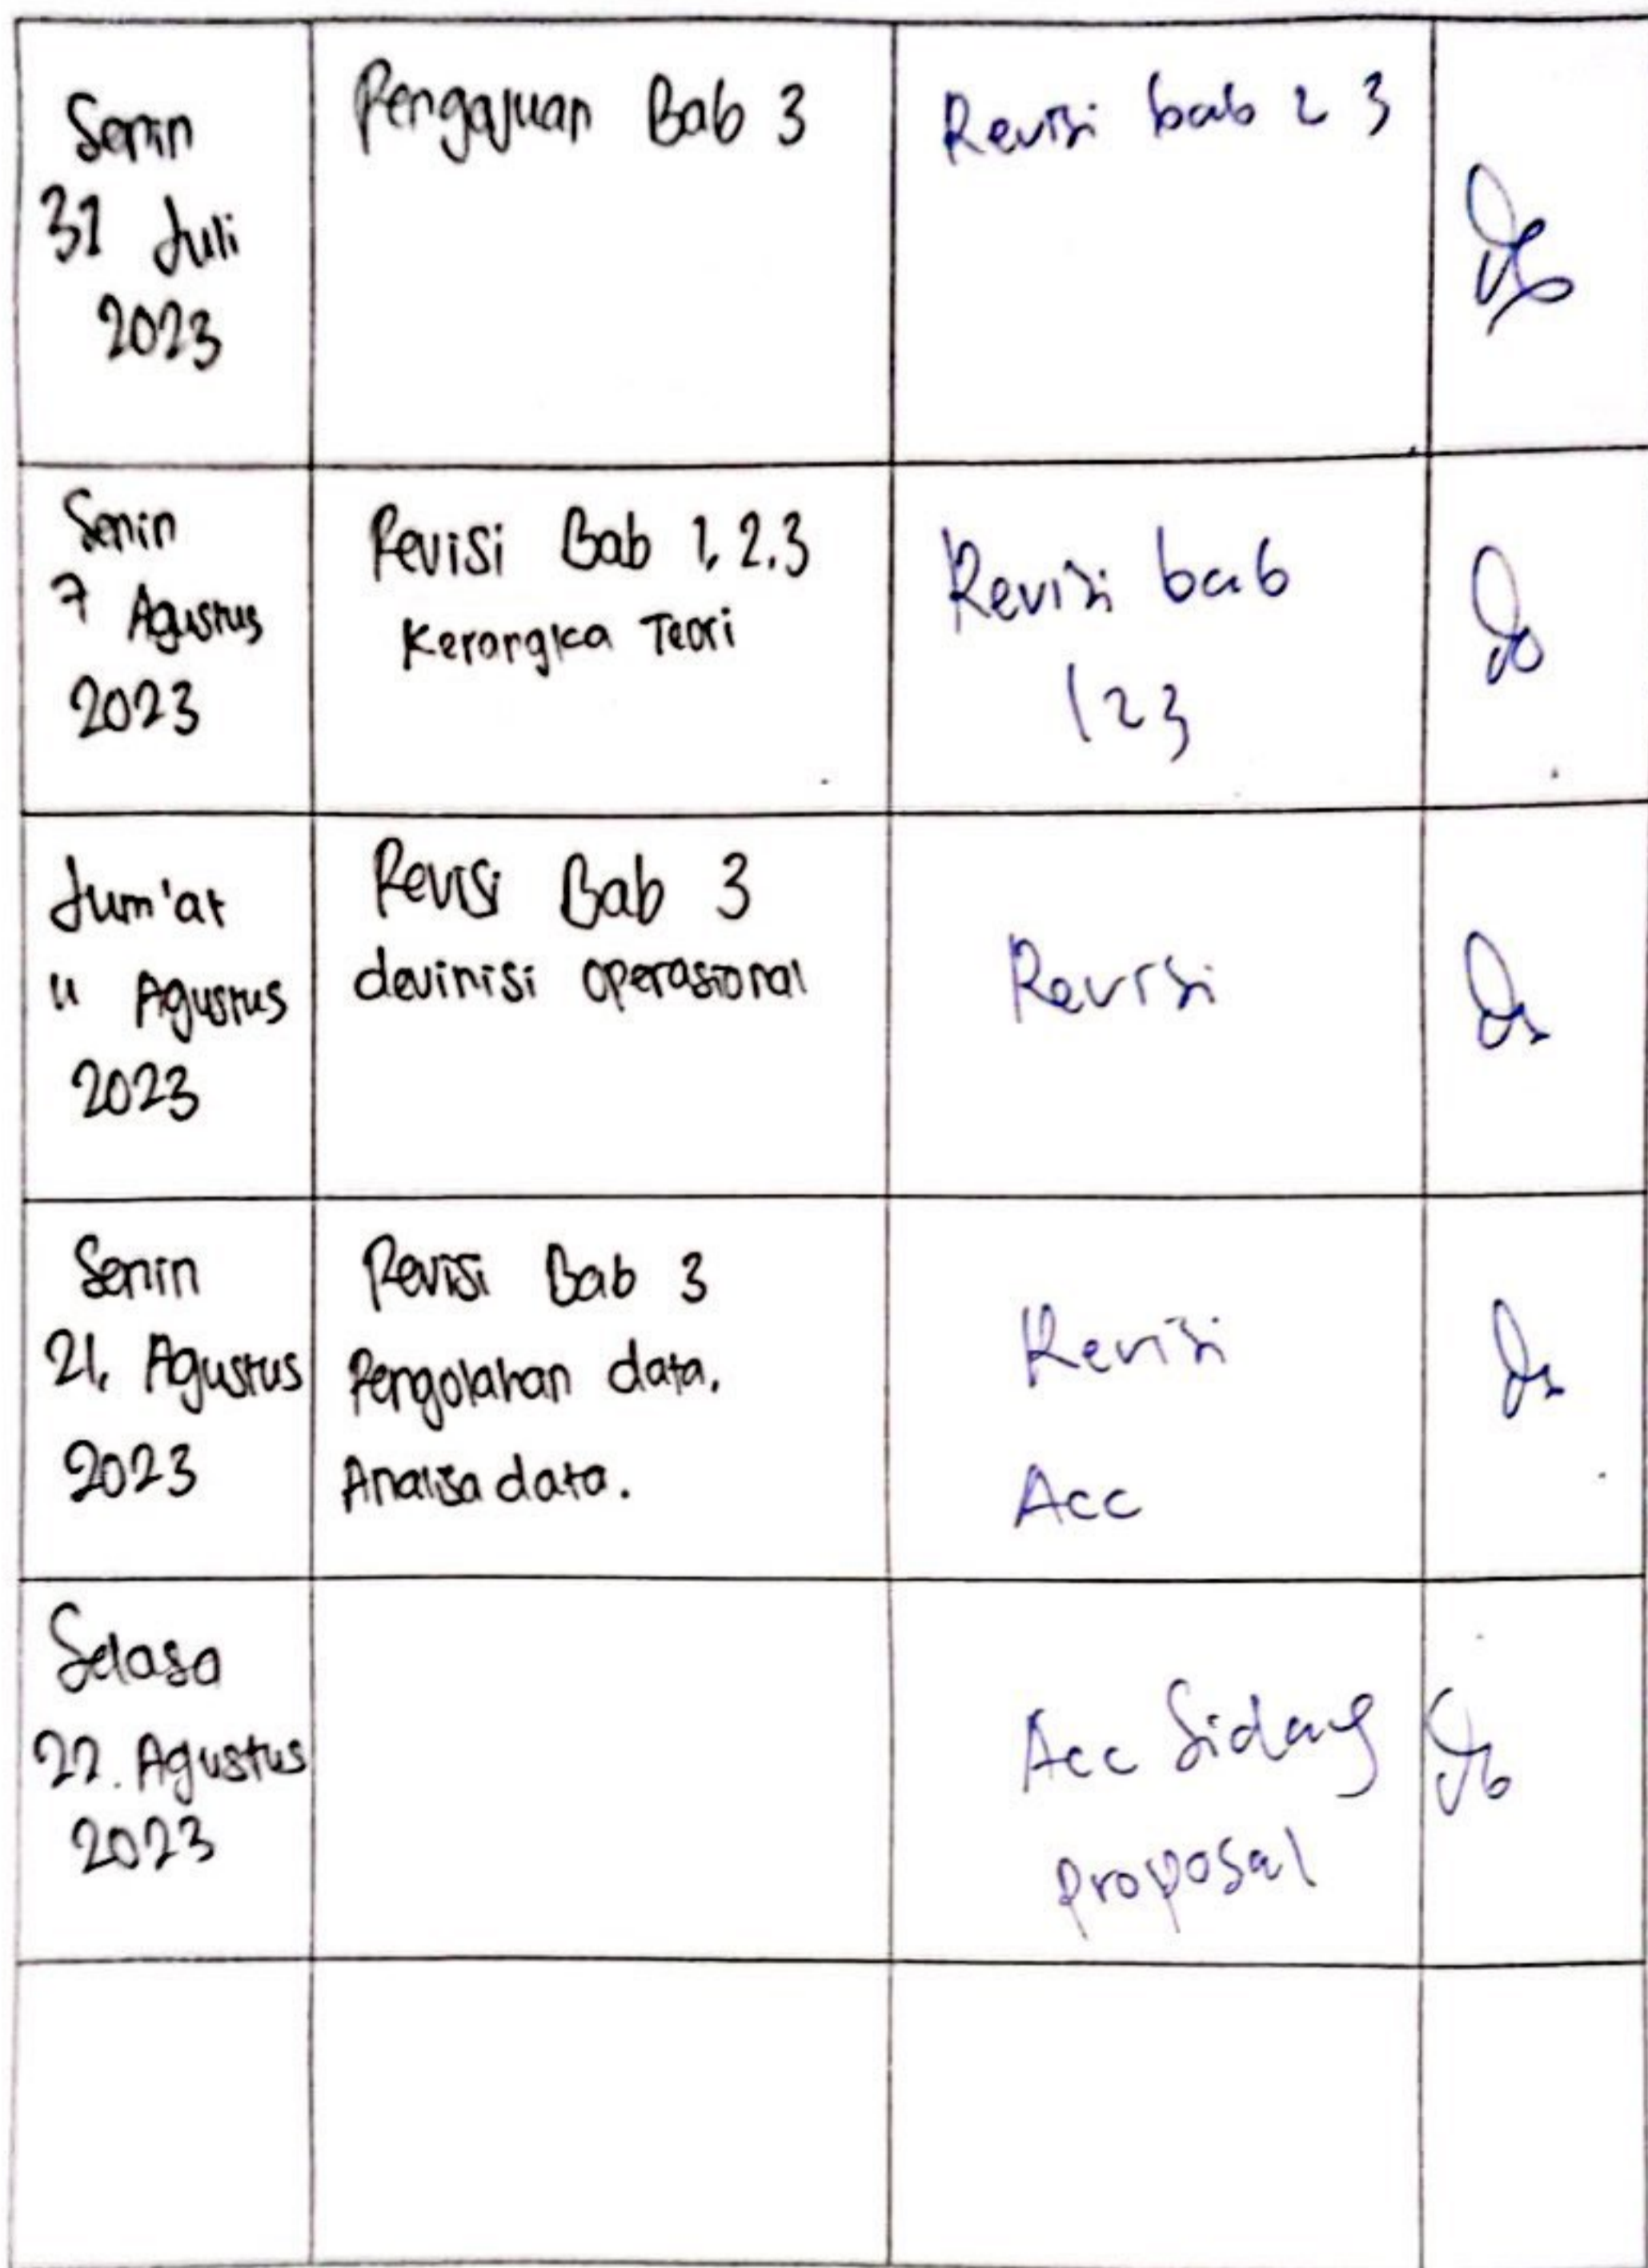 Senin
31 Juli
2023
Pengajuan Bab 3
Revisi bab 2 3
Senin
7 Agustus
2023
Revisi Bab 1, 2.3
Kerangka Teori
Revisi bab
1 2 3
Jum'at
11 Agustus
2023
Revisi Bab 3
devinisi operasional
Revisi
Senin
21, Agustus
2023
Revisi Bab 3
Pengolahan data.
Analisa data.
Revisi
Acc
Selasa
22. Agustus
2023
Acc Sidang
proposal